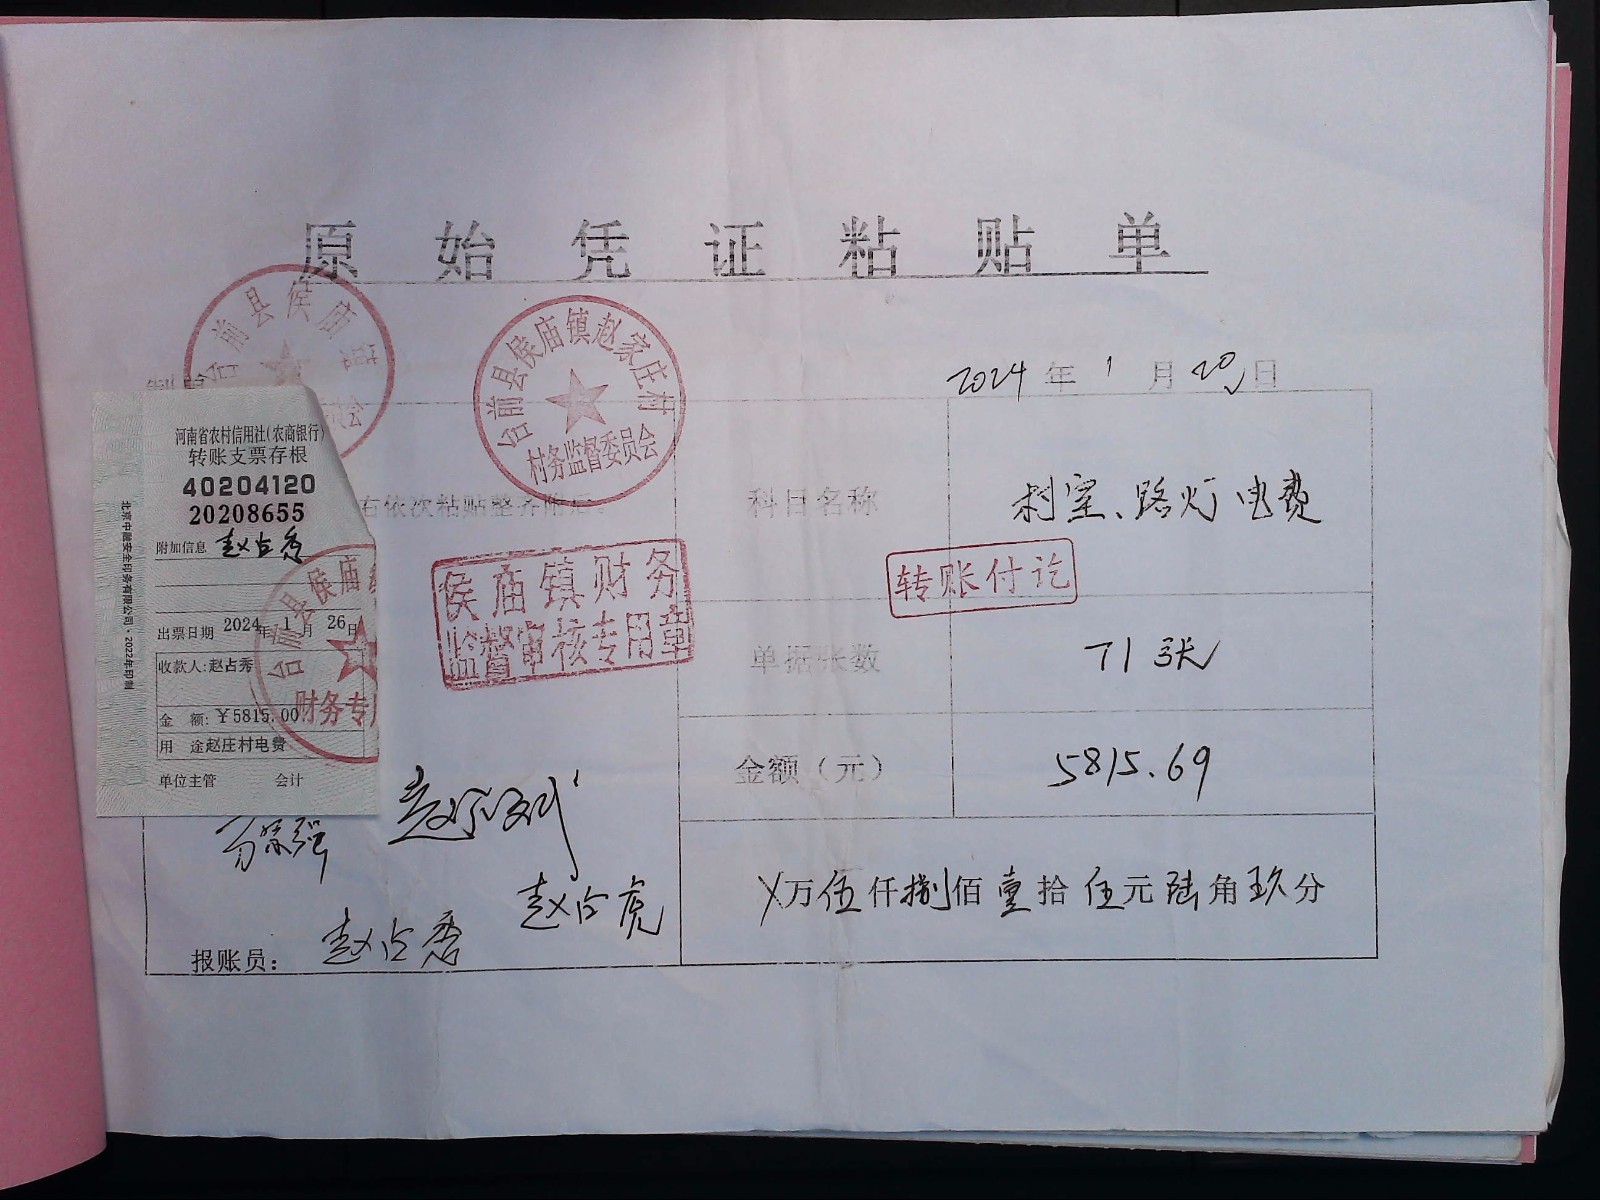 原始凭证粘贴单
台前县侯庙镇
台前县侯庙镇赵家庄村
村务监督委员会
2024年1月20日
河南省农村信用社(农商银行)
转账支票存根
40204120
20208655
附加信息 赵占秀
出票日期 2024年1月26日
收款人:赵占秀
金 额:¥5815.00
用 途赵庄村电费
单位主管 会计
北京中融安全印务有限公司·2022年印制
台前县侯庙
财务专用
右依次粘贴整齐附后。
侯庙镇财务
监督审核专用章
科目名称 路灯电费
转账付讫
单据张数 71张
金额(元) 5815.69
万伍仟捌佰壹拾伍元陆角玖分
赵占虎
报账员: 赵占秀